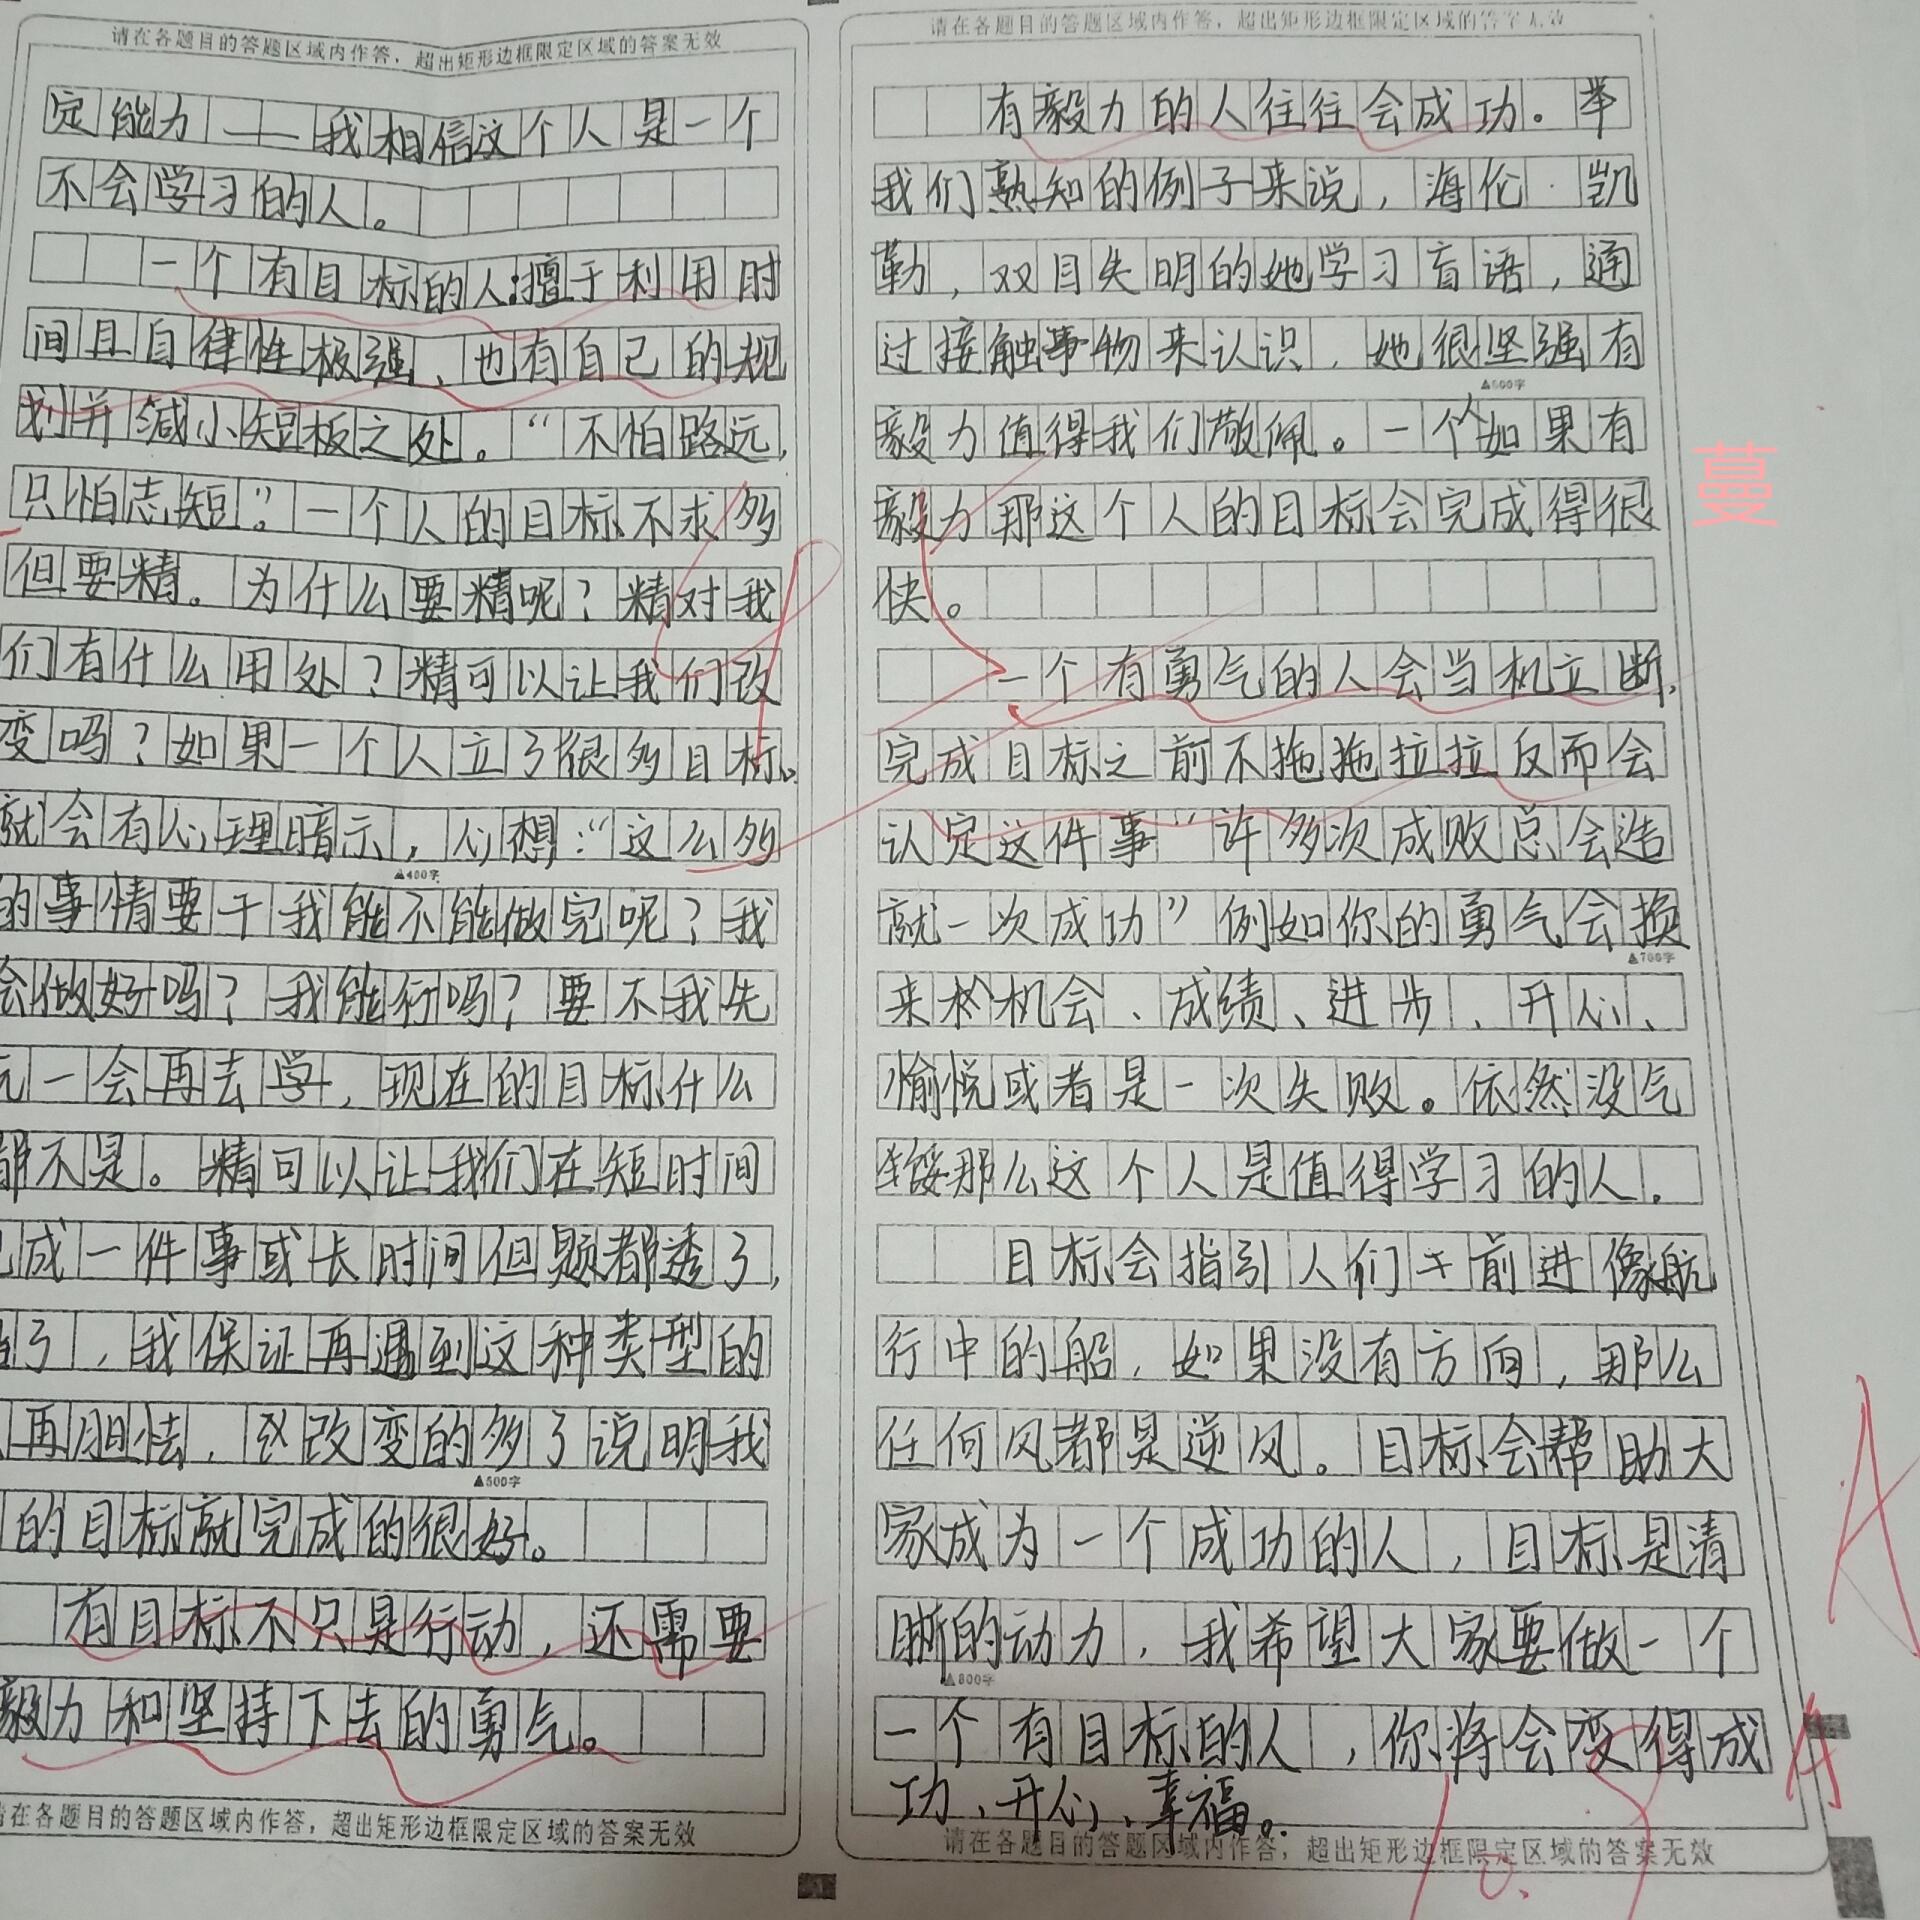 请在各题目的答题区域内作答，超出矩形边框限定区域的答案无效
定能力——我相信这个人是一个
不会学习的人。
一个有目标的人擅于利用时
间且自律性极强、也有自己的规
划并缄小短板之处。“不怕路远，
只怕志短”。一个人的目标不求多
但要精。为什么要精呢？精对我
们有什么用处？精可以让我们改
变吗？如果一个人立了很多目标。
就会有心理暗示，心想：“这么多
▲400字
的事情要干我能不能做完呢？我
会做好吗？我能行吗？要不我先
一会再去学，现在的目标什么
都不是。精可以让我们在短时间
成一件事或长时间但题都透了，
了，我保证再遇到这种类型的
再胆怯，改变的多了说明我
▲500字
的目标就完成的很好。
有目标不只是行动，还需要
毅力和坚持下去的勇气。
请在各题目的答题区域内作答，超出矩形边框限定区域的答案无效
请在各题目的答题区域内作答，超出矩形边框限定区域的答案无效
有毅力的人往往会成功。举
我们熟知的例子来说，海伦·凯
勒，双目失明的她学习盲语，通
过接触事物来认识，她很坚强有
▲600字
毅力值得我们敬佩。一个人如果有
毅力那这个人的目标会完成得很
快。
一个有勇气的人会当机立断，
完成目标之前不拖拖拉拉反而会
认定这件事“许多次成败总会造
就一次成功”例如你的勇气会换
▲700字
来机会、成绩、进步、开心、
愉悦或者是一次失败。依然没气
馁那么这个人是值得学习的人.
目标会指引人们于前进像航
行中的船，如果没有方向，那么
任何风都是逆风。目标会帮助大
家成为一个成功的人，目标是清
晰的动力，我希望大家要做一个
▲800字
一个有目标的人，你将会变得成
功、开心、幸福。
请在各题目的答题区域内作答，超出矩形边框限定区域的答案无效
蔓
A